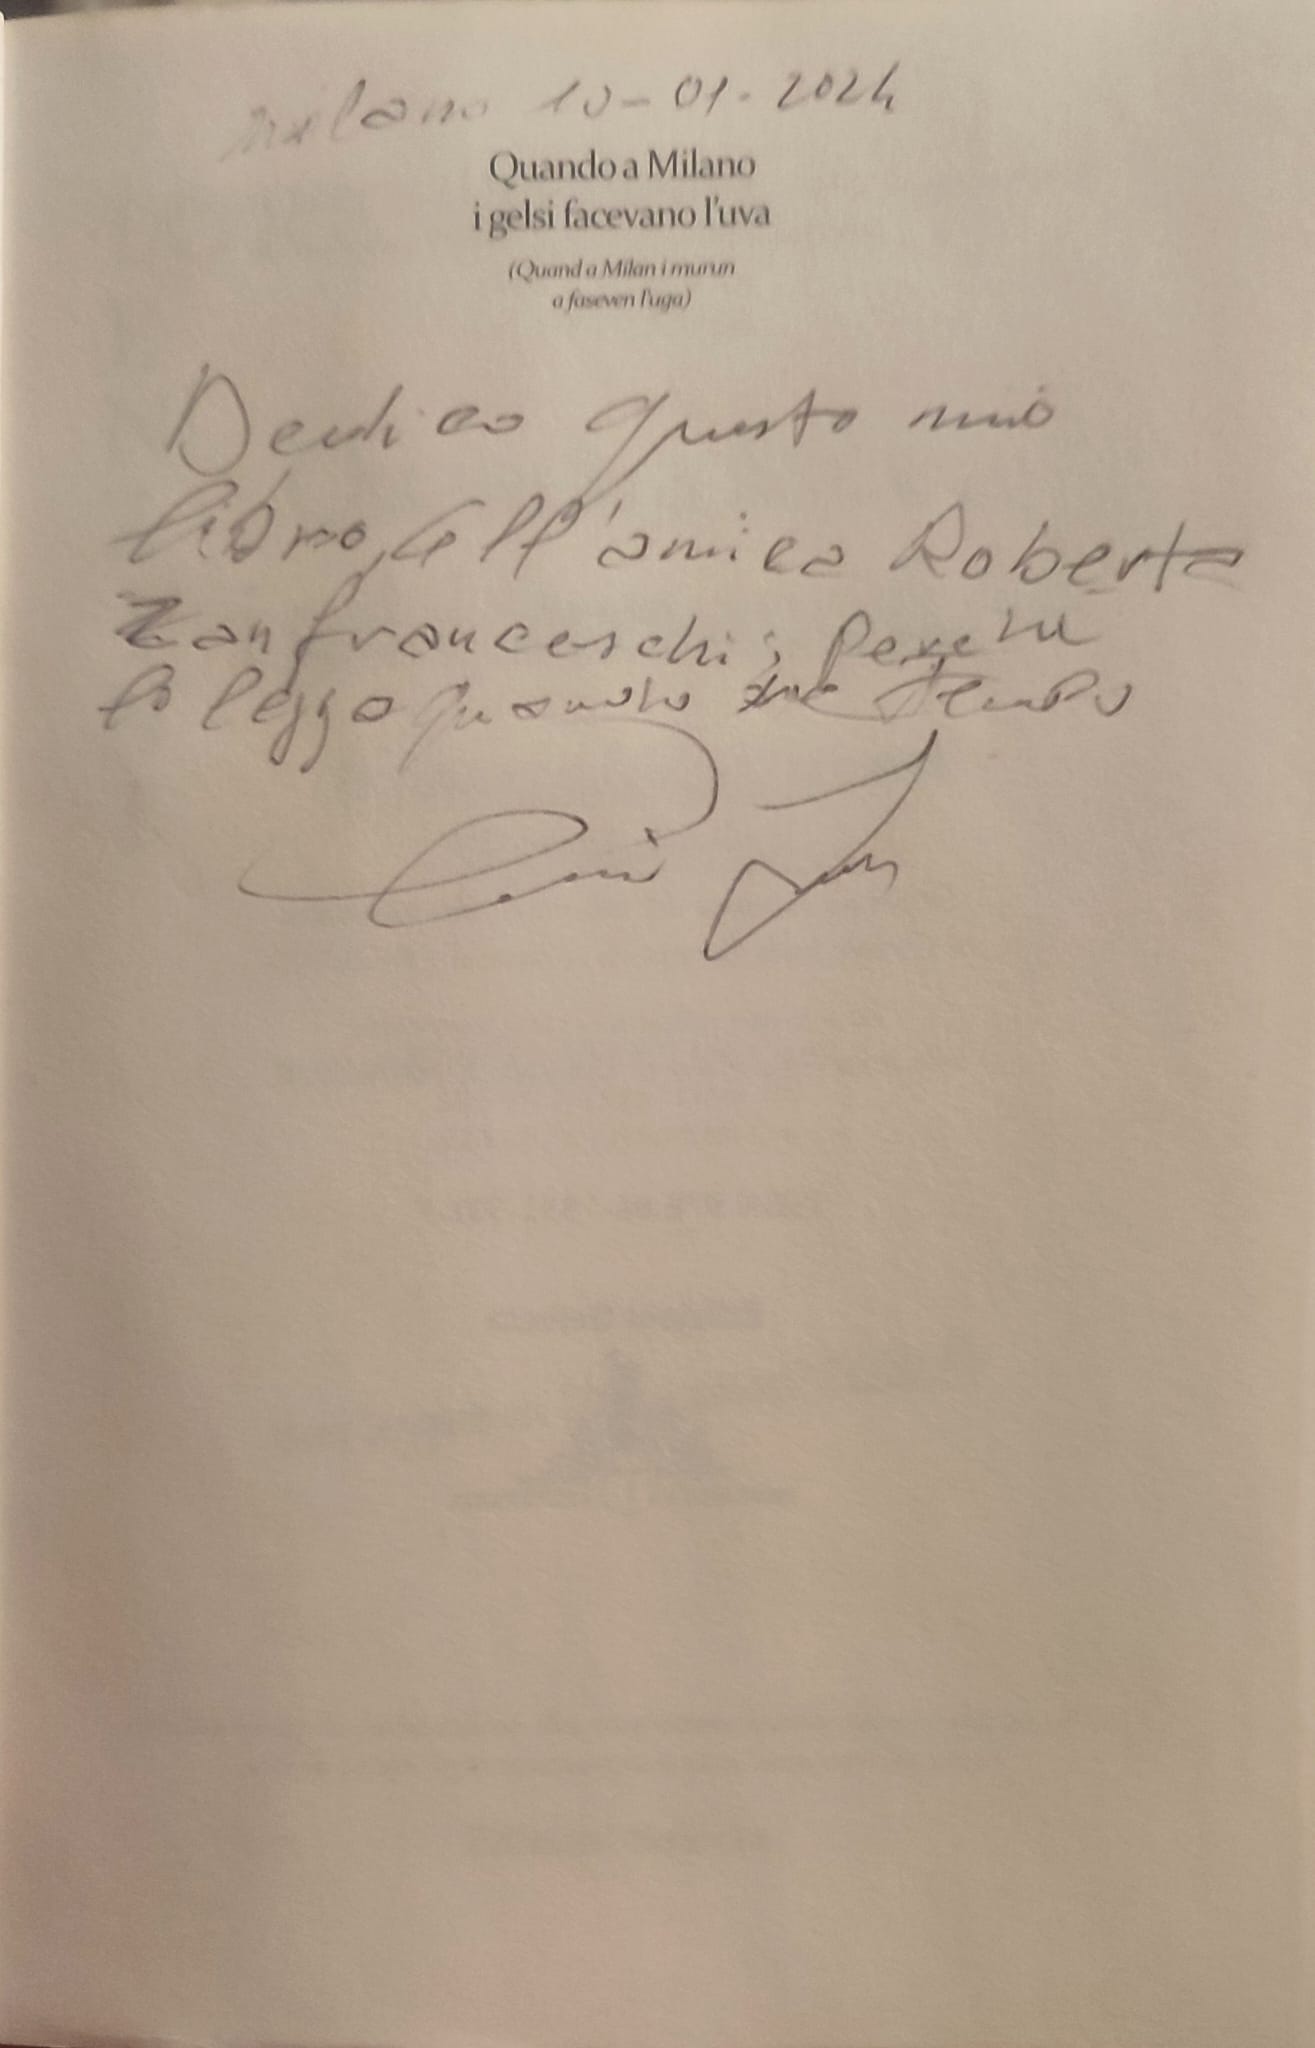 Milano 10-01-2024
Quando a Milano
i gelsi facevano l'uva
(Quand a Milan i murun
a faseven l'uga)
Dedico questo mio
libro, all'amica Roberta
Zanfranceschi; Perché
lo legga quando ha tempo